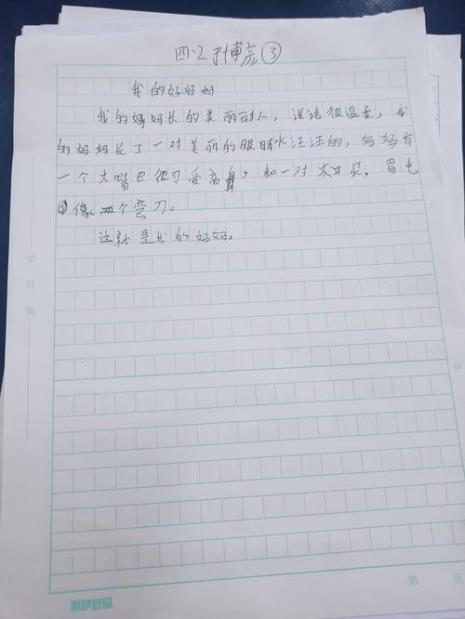 四.2 叶博豪 ③
我的好妈妈
我的妈妈长的美丽动人，说话很温柔，我
的妈妈长了一对美丽的眼睛水汪汪的，妈妈有
一个大嘴巴很可爱高鼻，和一对大耳朵，眉毛
像两个弯刀。
这就是我的妈妈。
装
订
线
第 页